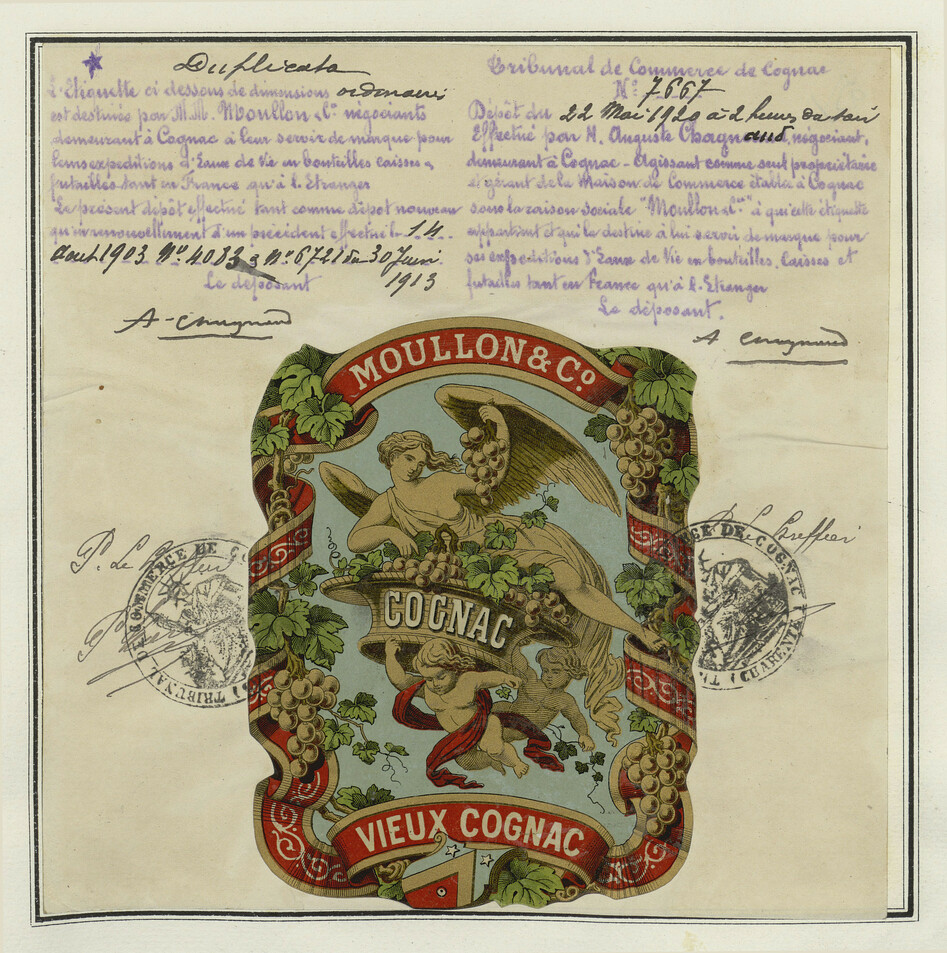 Duplicata
L'Etiquette ci dessous de dimensions ordinaires
est destinée par M.M. Moullon & Cie négociants
demeurant à Cognac à leur servir de marque pour
leurs expeditions d'Eaux de Vie en bouteilles caisses &
futailles tant en France qu'à l'Etranger
Le présent dépôt effectué tant comme dépot nouveau
qu'en renouvellement d'un précédent effectué le 14
Aout 1903 No. 4083 & No. 6721 du 30 Juin
1913
Le déposant
A. Chagnaud
Tribunal de Commerce de Cognac
No. 7667
Dépôt du 22 Mai 1920 à 2 heures du soir
Effectué par M. Auguste Chagnaud, négociant,
demeurant à Cognac - Agissant comme seul propriétaire
et gérant de la Maison de Commerce établie à Cognac
sous la raison sociale "Moullon & Cie" à qui cette étiquette
appartient et qui la destine à lui servir de marque pour
ses expeditions d'Eaux de Vie en bouteilles, caisses et
futailles tant en France qu'à l'Etranger
Le déposant.
A Chagnaud
MOULLON & Co.
COGNAC
VIEUX COGNAC
P. Le Greffier
TRIBUNAL DE COMMERCE DE CO
P. Le Greffier
SE DE COGNAC
(CHARENTE)